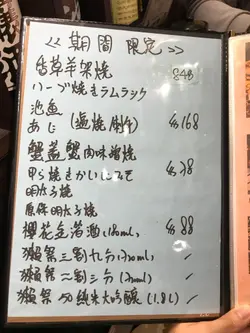 << 期間 限定 >>
香草羊架燒 $48
ハーブ焼きラムラック
池魚
あじ (塩焼 刺身) $168
蟹蓋蟹肉味噌燒 $38
甲ら焼きかにみそ
明太子燒
原條明太子燒
櫻花金箔酒 (180mL) $88
獺祭 二割三分 /
獺祭 50 純米大吟釀 (1.8L) /